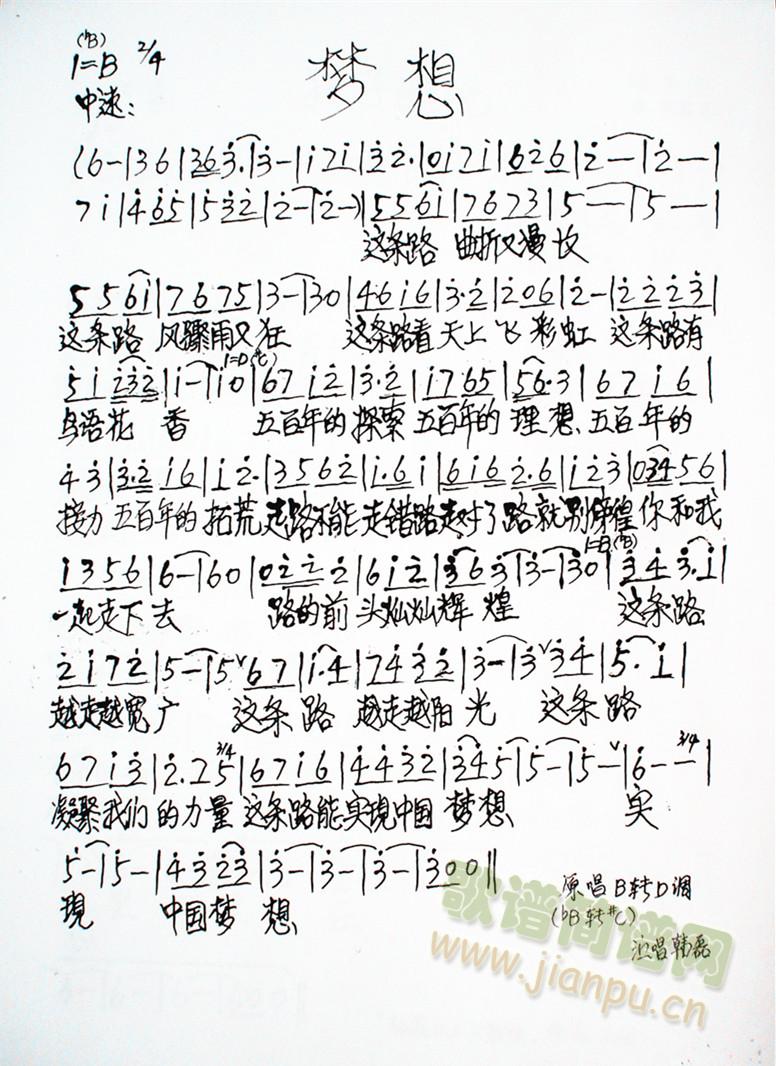 (♭B)
1=B 2/4
梦想
中速:
(6-|36|363.|3-|i7i|32.|0i7i|626|2-|2-|
7i|465|532|2-|2-)|556i|7673|5-|5-|
这条路 曲折又漫长
556i|7675|3-|30|46i6|3.2|206|2-|2223|
这条路 风骤雨又狂 这条路看天上飞彩虹 这条路有
1=D(♯C)
5i232|i-|i0|67i2|3.2|i765|56.3|67i6|
鸟语花香 五百年的探索 五百年的理想 五百年的
43|3.2i6|i2.|3562|i.6i|6i62.6|i23|03456|
接力 五百年的拓荒 走路不能走错路走对了路就别彷徨 你和我
1=B(♭B)
i356|6-|60|0222|6i2|363|3-|30|343.i|
一起走下去 路的前头灿灿辉煌 这条路
2i72|5-|5∨67|i.4|7432|3-|3∨34|5.i|
越走越宽广 这条路 越走越阳光 这条路
67i3|2.25|67i6|4432|345|5-|5-∨|6--|
3/4 3/4
凝聚我们的力量 这条路能实现中国梦想 实
5-|5-|4323|3-|3-|3-|300‖
现 中国梦想
原唱B转D调
(♭B转♯C)
演唱韩磊
歌谱简谱网
www.jianpu.cn